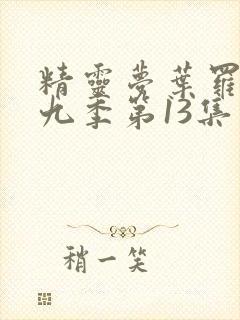 精靈夢葉羅
九季第13集
稍一笑